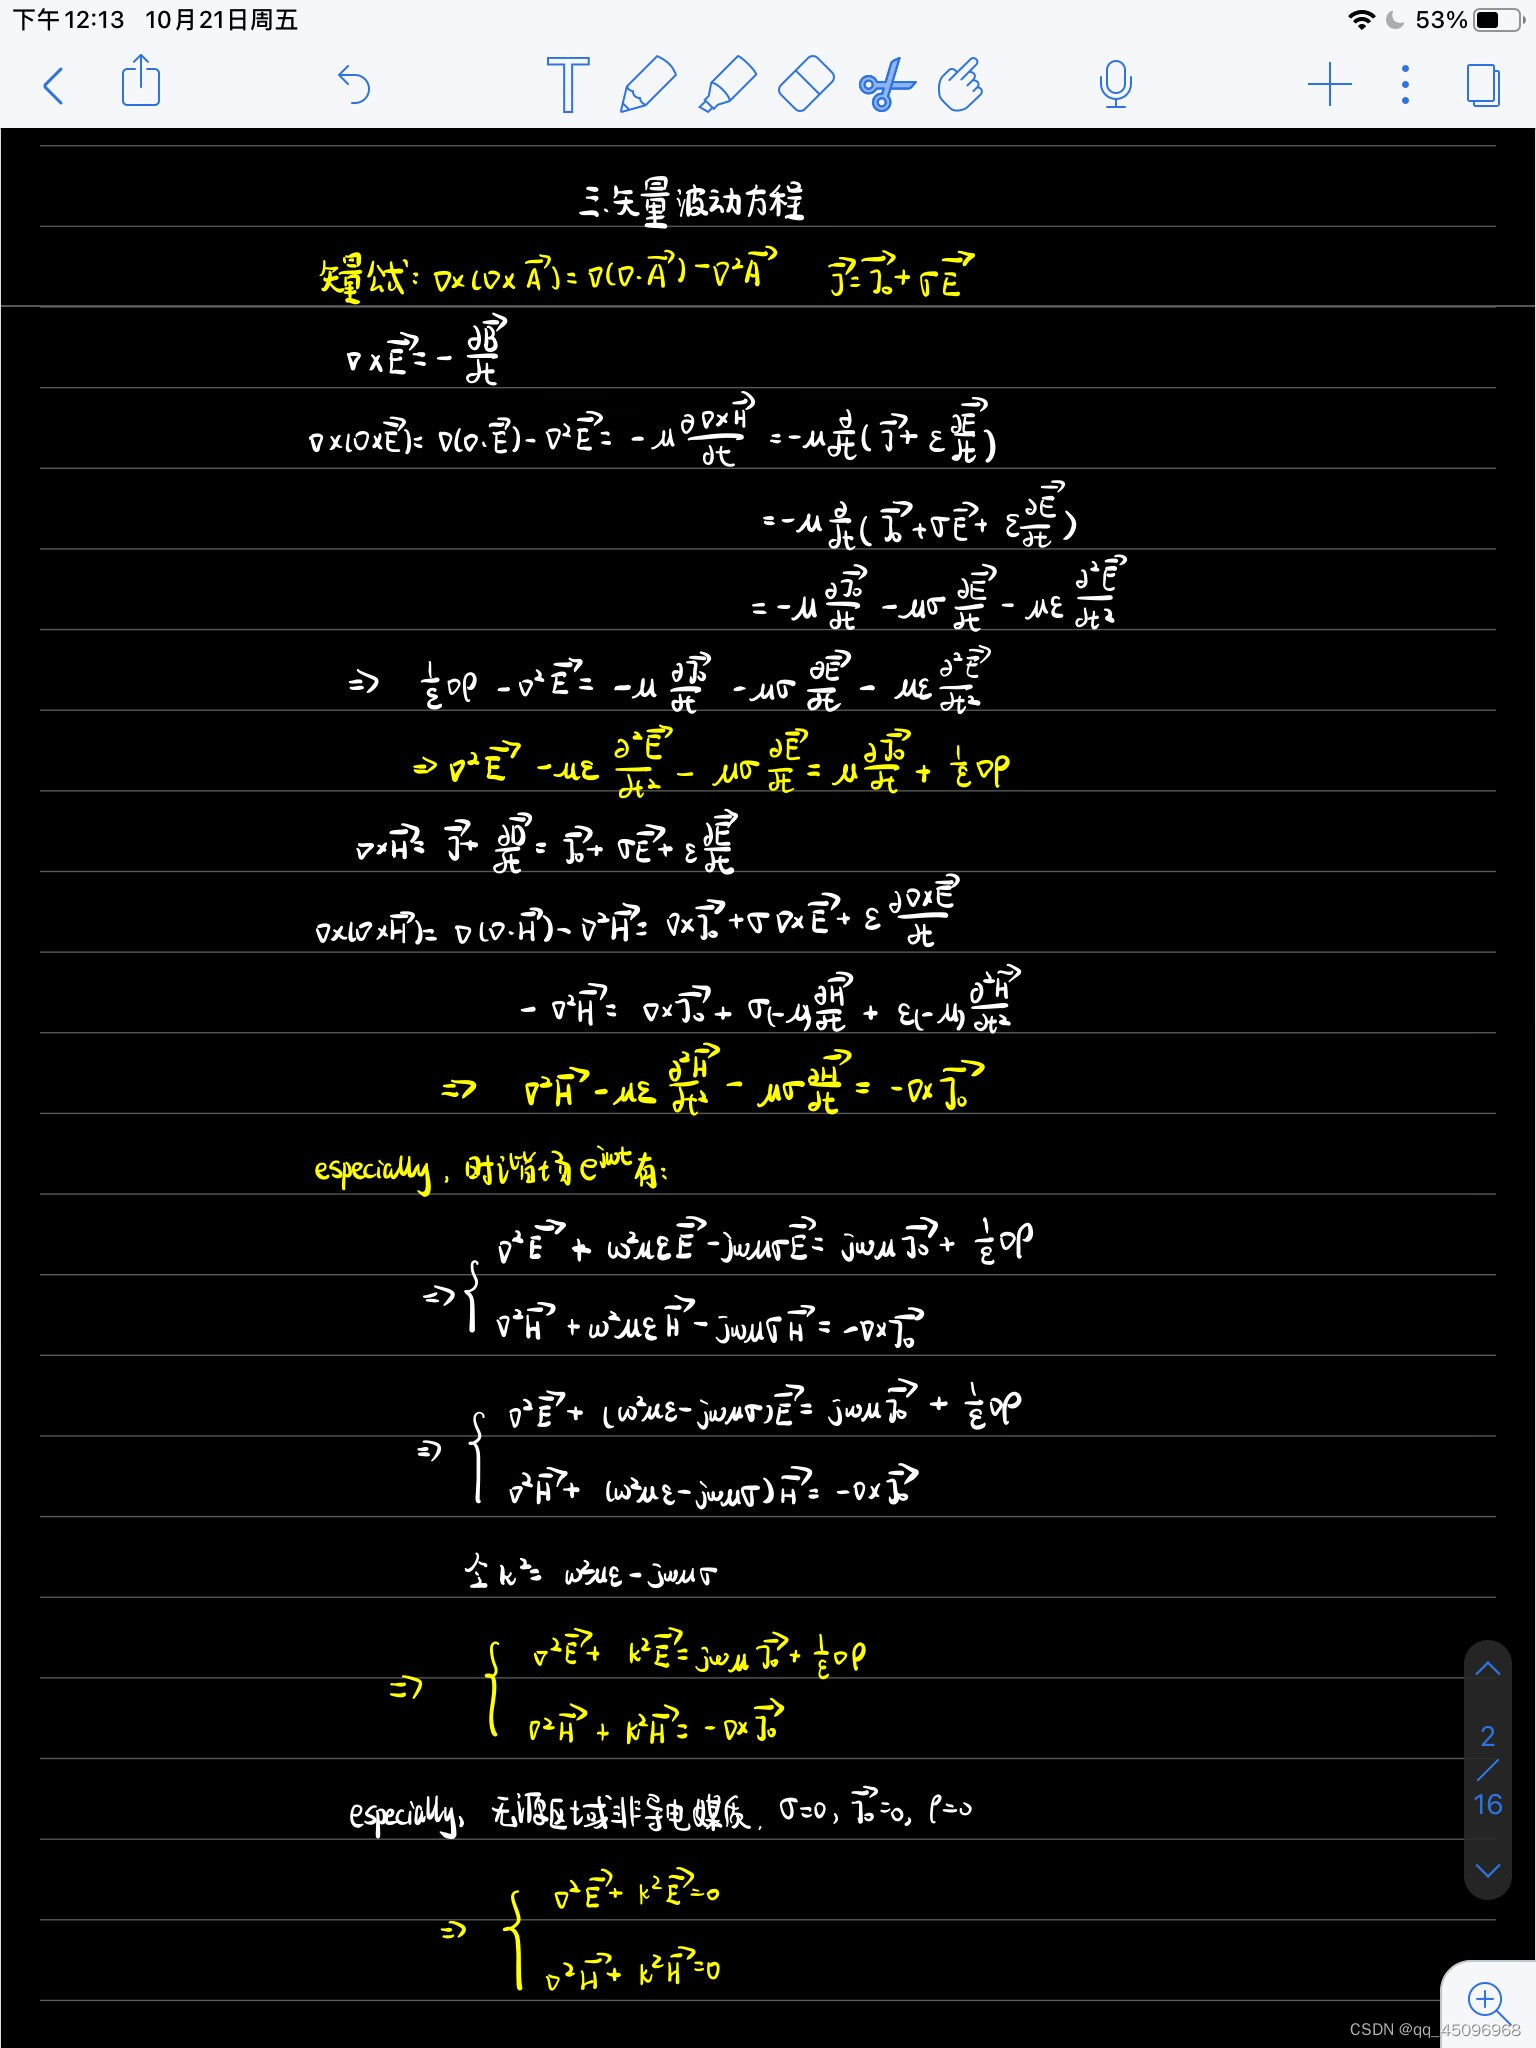 下午12:13 10月21日周五
53%
三.矢量波动方程
矢量公式: ∇×(∇×A⃗)=∇(∇·A⃗)-∇²A⃗ J⃗=J⃗₀+σE⃗
∇×E⃗=-∂B⃗/∂t
∇×(∇×E⃗)=∇(∇·E⃗)-∇²E⃗=-μ∂∇×H⃗/∂t=-μ∂/∂t(J⃗+ε∂E⃗/∂t)
=-μ∂/∂t(J⃗₀+σE⃗+ε∂E⃗/∂t)
=-μ∂J⃗₀/∂t-μσ∂E⃗/∂t-με∂²E⃗/∂t²
⇒ 1/ε∇ρ-∇²E⃗=-μ∂J⃗₀/∂t-μσ∂E⃗/∂t-με∂²E⃗/∂t²
⇒ ∇²E⃗-με∂²E⃗/∂t²-μσ∂E⃗/∂t=μ∂J⃗₀/∂t+1/ε∇ρ
∇×H⃗=J⃗+∂D⃗/∂t=J⃗₀+σE⃗+ε∂E⃗/∂t
∇×(∇×H⃗)=∇(∇·H⃗)-∇²H⃗=∇×J⃗₀+σ∇×E⃗+ε∂∇×E⃗/∂t
-∇²H⃗=∇×J⃗₀+σ(-μ)∂H⃗/∂t+ε(-μ)∂²H⃗/∂t²
⇒ ∇²H⃗-με∂²H⃗/∂t²-μσ∂H⃗/∂t=-∇×J⃗₀
especially, 时谐场e^jωt有:
∇²E⃗+ω²μεE⃗-jωμσE⃗=jωμJ⃗₀+1/ε∇ρ
⇒{
∇²H⃗+ω²μεH⃗-jωμσH⃗=-∇×J⃗₀
∇²E⃗+(ω²με-jωμσ)E⃗=jωμJ⃗₀+1/ε∇ρ
⇒{
∇²H⃗+(ω²με-jωμσ)H⃗=-∇×J⃗₀
令k²=ω²με-jωμσ
∇²E⃗+k²E⃗=jωμJ⃗₀+1/ε∇ρ
⇒{
∇²H⃗+k²H⃗=-∇×J⃗₀
especially, 无源区域非导电媒质, σ=0, J⃗₀=0, ρ=0
∇²E⃗+k²E⃗=0
⇒{
∇²H⃗+k²H⃗=0
2
/
16
CSDN @qq_45096968